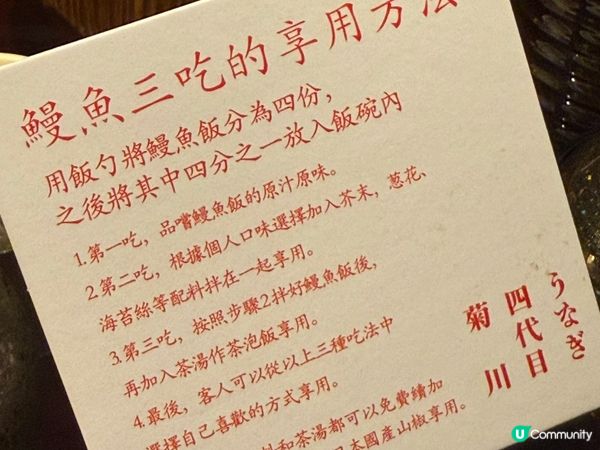 鰻魚三吃的享用方法
用飯勺將鰻魚飯分為四份，
之後將其中四分之一放入飯碗內
1.第一吃，品嚐鰻魚飯的原汁原味。
2.第二吃，根據個人口味選擇加入芥末，蔥花、
海苔絲等配料拌在一起享用。
3.第三吃，按照步驟2拌好鰻魚飯後，
再加入茶湯作茶泡飯享用。
4.最後，客人可以從以上三種吃法中
選擇自己喜歡的方式享用。
和茶湯都可以免費續加
本國產山椒享用。
うなぎ
四代目
菊川
U Community